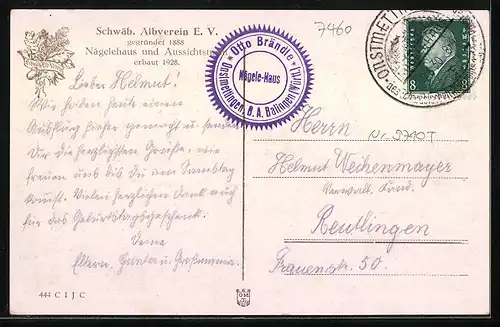 Schwäb. Albverein E. V.
gegründet 1888
Nägelehaus und Aussichtsturm
erbaut 1928.
Otto Brändle
Nägele-Haus
Onstmettingen, O. A. Balingen (Wttbg.)
7460
ONSTMETTINGEN
8 8
Lieber Helmut!
Wir haben heute einen
Ausflug hieher gemacht u. senden
Dir die herzlichsten Grüße, wir
freuen uns bis du am Samstag
kommst. Vielen herzlichen Dank auch
für das Geburtstagsgeschenk.
Deine
Eltern, u. Großmama.
Herrn
Helmut Weihenmayer
Kand.
Reutlingen
Frauenstr. 50.
444 C I J C